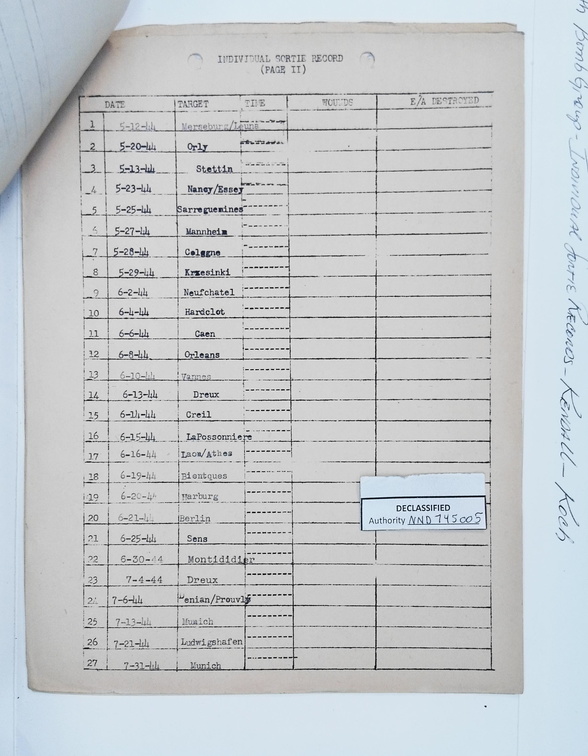 INDIVIDUAL SORTIE RECORD
(PAGE II)
DATE TARGET TIME WOUNDS E/A DESTROYED
1 5-12-44 Merseburg/Leuna
2 5-20-44 Orly
3 5-13-44 Stettin
4 5-23-44 Nancy/Essey
5 5-25-44 Sarreguemines
6 5-27-44 Mannheim
7 5-28-44 Cologne
8 5-29-44 Krzesinki
9 6-2-44 Neufchatel
10 6-4-44 Hardelot
11 6-6-44 Caen
12 6-8-44 Orleans
13 6-10-44 Vannes
14 6-13-44 Dreux
15 6-14-44 Creil
16 6-15-44 LaPossonniere
17 6-16-44 Laon/Athes
18 6-19-44 Bientques
19 6-20-44 Harburg
20 6-21-44 Berlin
21 6-25-44 Sens
22 6-30-44 Montididier
23 7-4-44 Dreux
24 7-6-44 /Prouvly
25 7-13-44 Munich
26 7-21-44 Ludwigshafen
27 7-31-44 Munich
DECLASSIFIED
Authority NND 745005
Bomb Group - Individual Sortie Records - Kendall - Koch